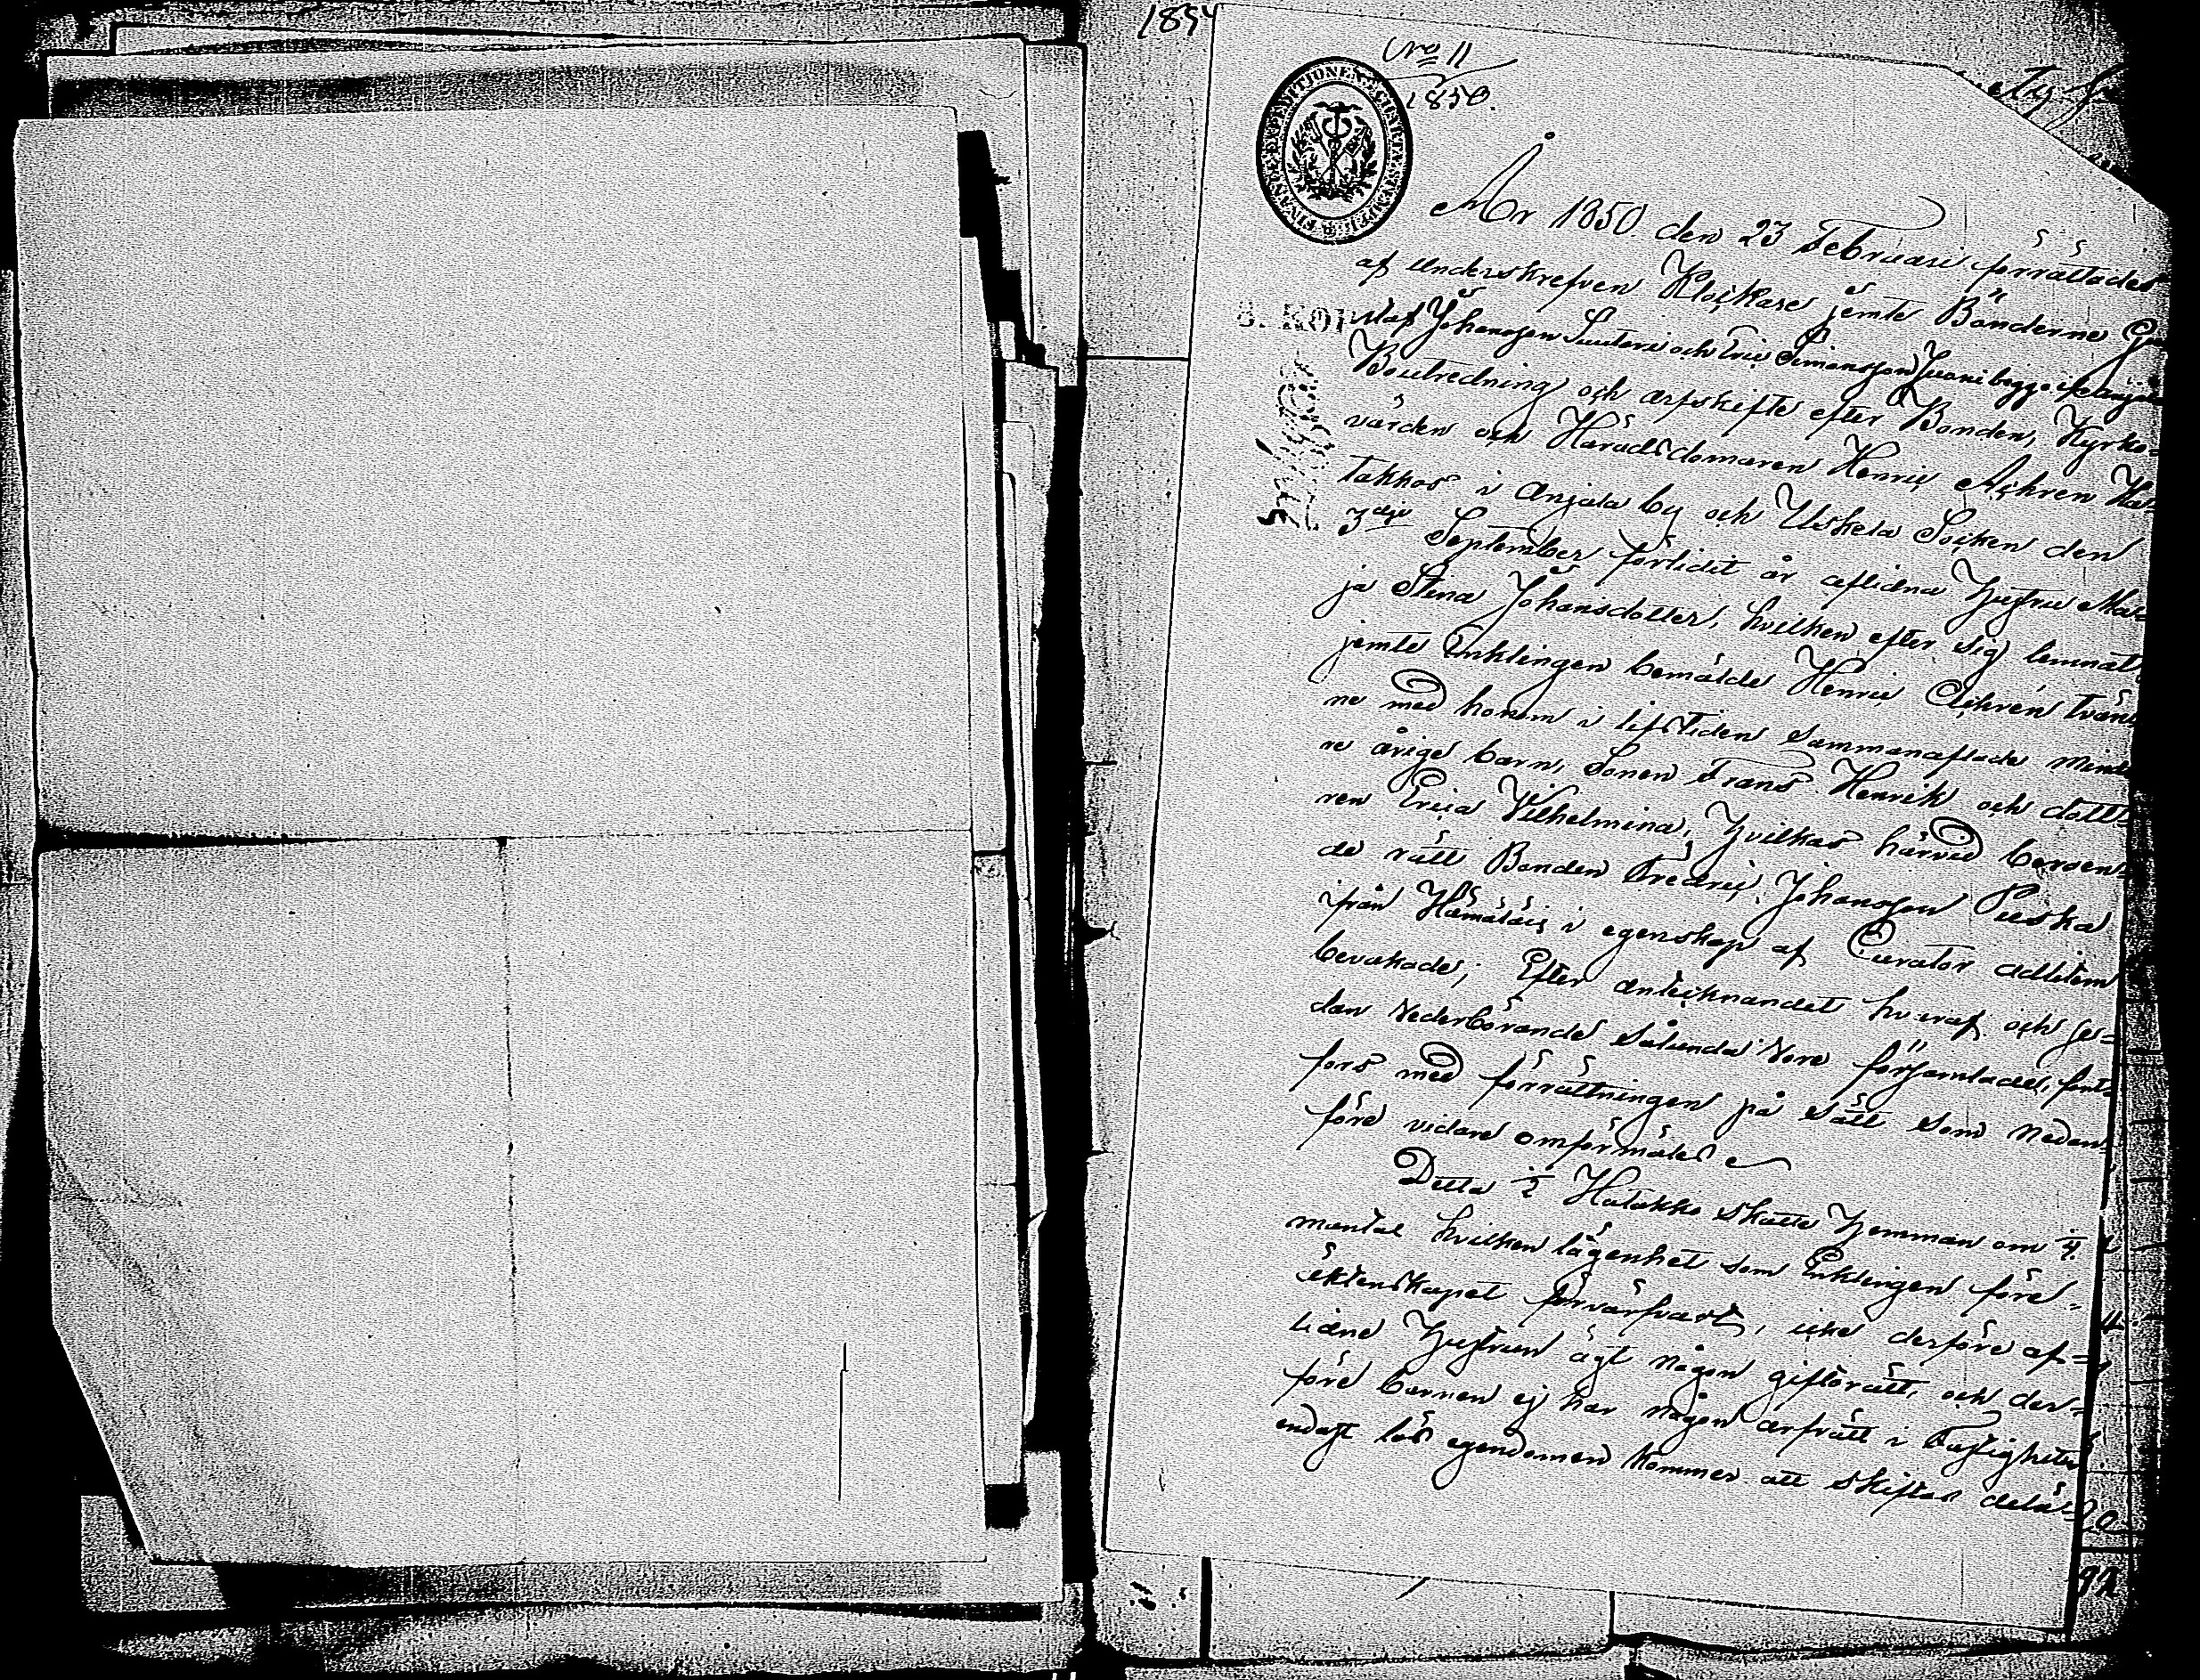 1854
No 11
1850.
FINANCE EXPEDITIONEN CHARTA STEMPEL
År 1850 den 23 Februari förrättades
af underskrefven Klockare jemte Bönderne Gu
staf Johansson Suutari och Eric Simonsson Juoni begge i
Boutredning och arfskifte efter Bonden, Kyrko-
värden och Häradsdomaren Henric Achren Ha-
takkos i Anjala by och Uskela Socken den
3dje September förlidit år aflidna Hustru Ma-
ja Stina Johansdotter, hvilken efter sig lemnat,
jemte Enklingen bemälde Henric Achrén tvän-
ne med honom i lifstiden sammanaflade mind-
re årige barn, Sonen Frans Henrik och dott-
ren Erica Vilhelmina, Hvilkas härvid beroen-
de rätt Bonden Fredric Johansson Puska
ifrån Hämäläis i egenskap af Curator adlitem
bevakade; Efter antecknandet hvaraf och se-
dan Vederbörande sålunda vore församlade, fort-
fors med förrättningen på sätt som nedan-
före vidare omförmäles
Detta 1/2 Hatakko skatte Hemman om 1/4
mantal hvilken lägenhet som Enklingen före
äktenskapet förvärfvart, icke derföre af-
lidne Hustrun ägt någon giftorätt, och der-
före barnen ej har någon arfrätt i Fastigheten
endast lös egendomen kommer att skiftas delä-